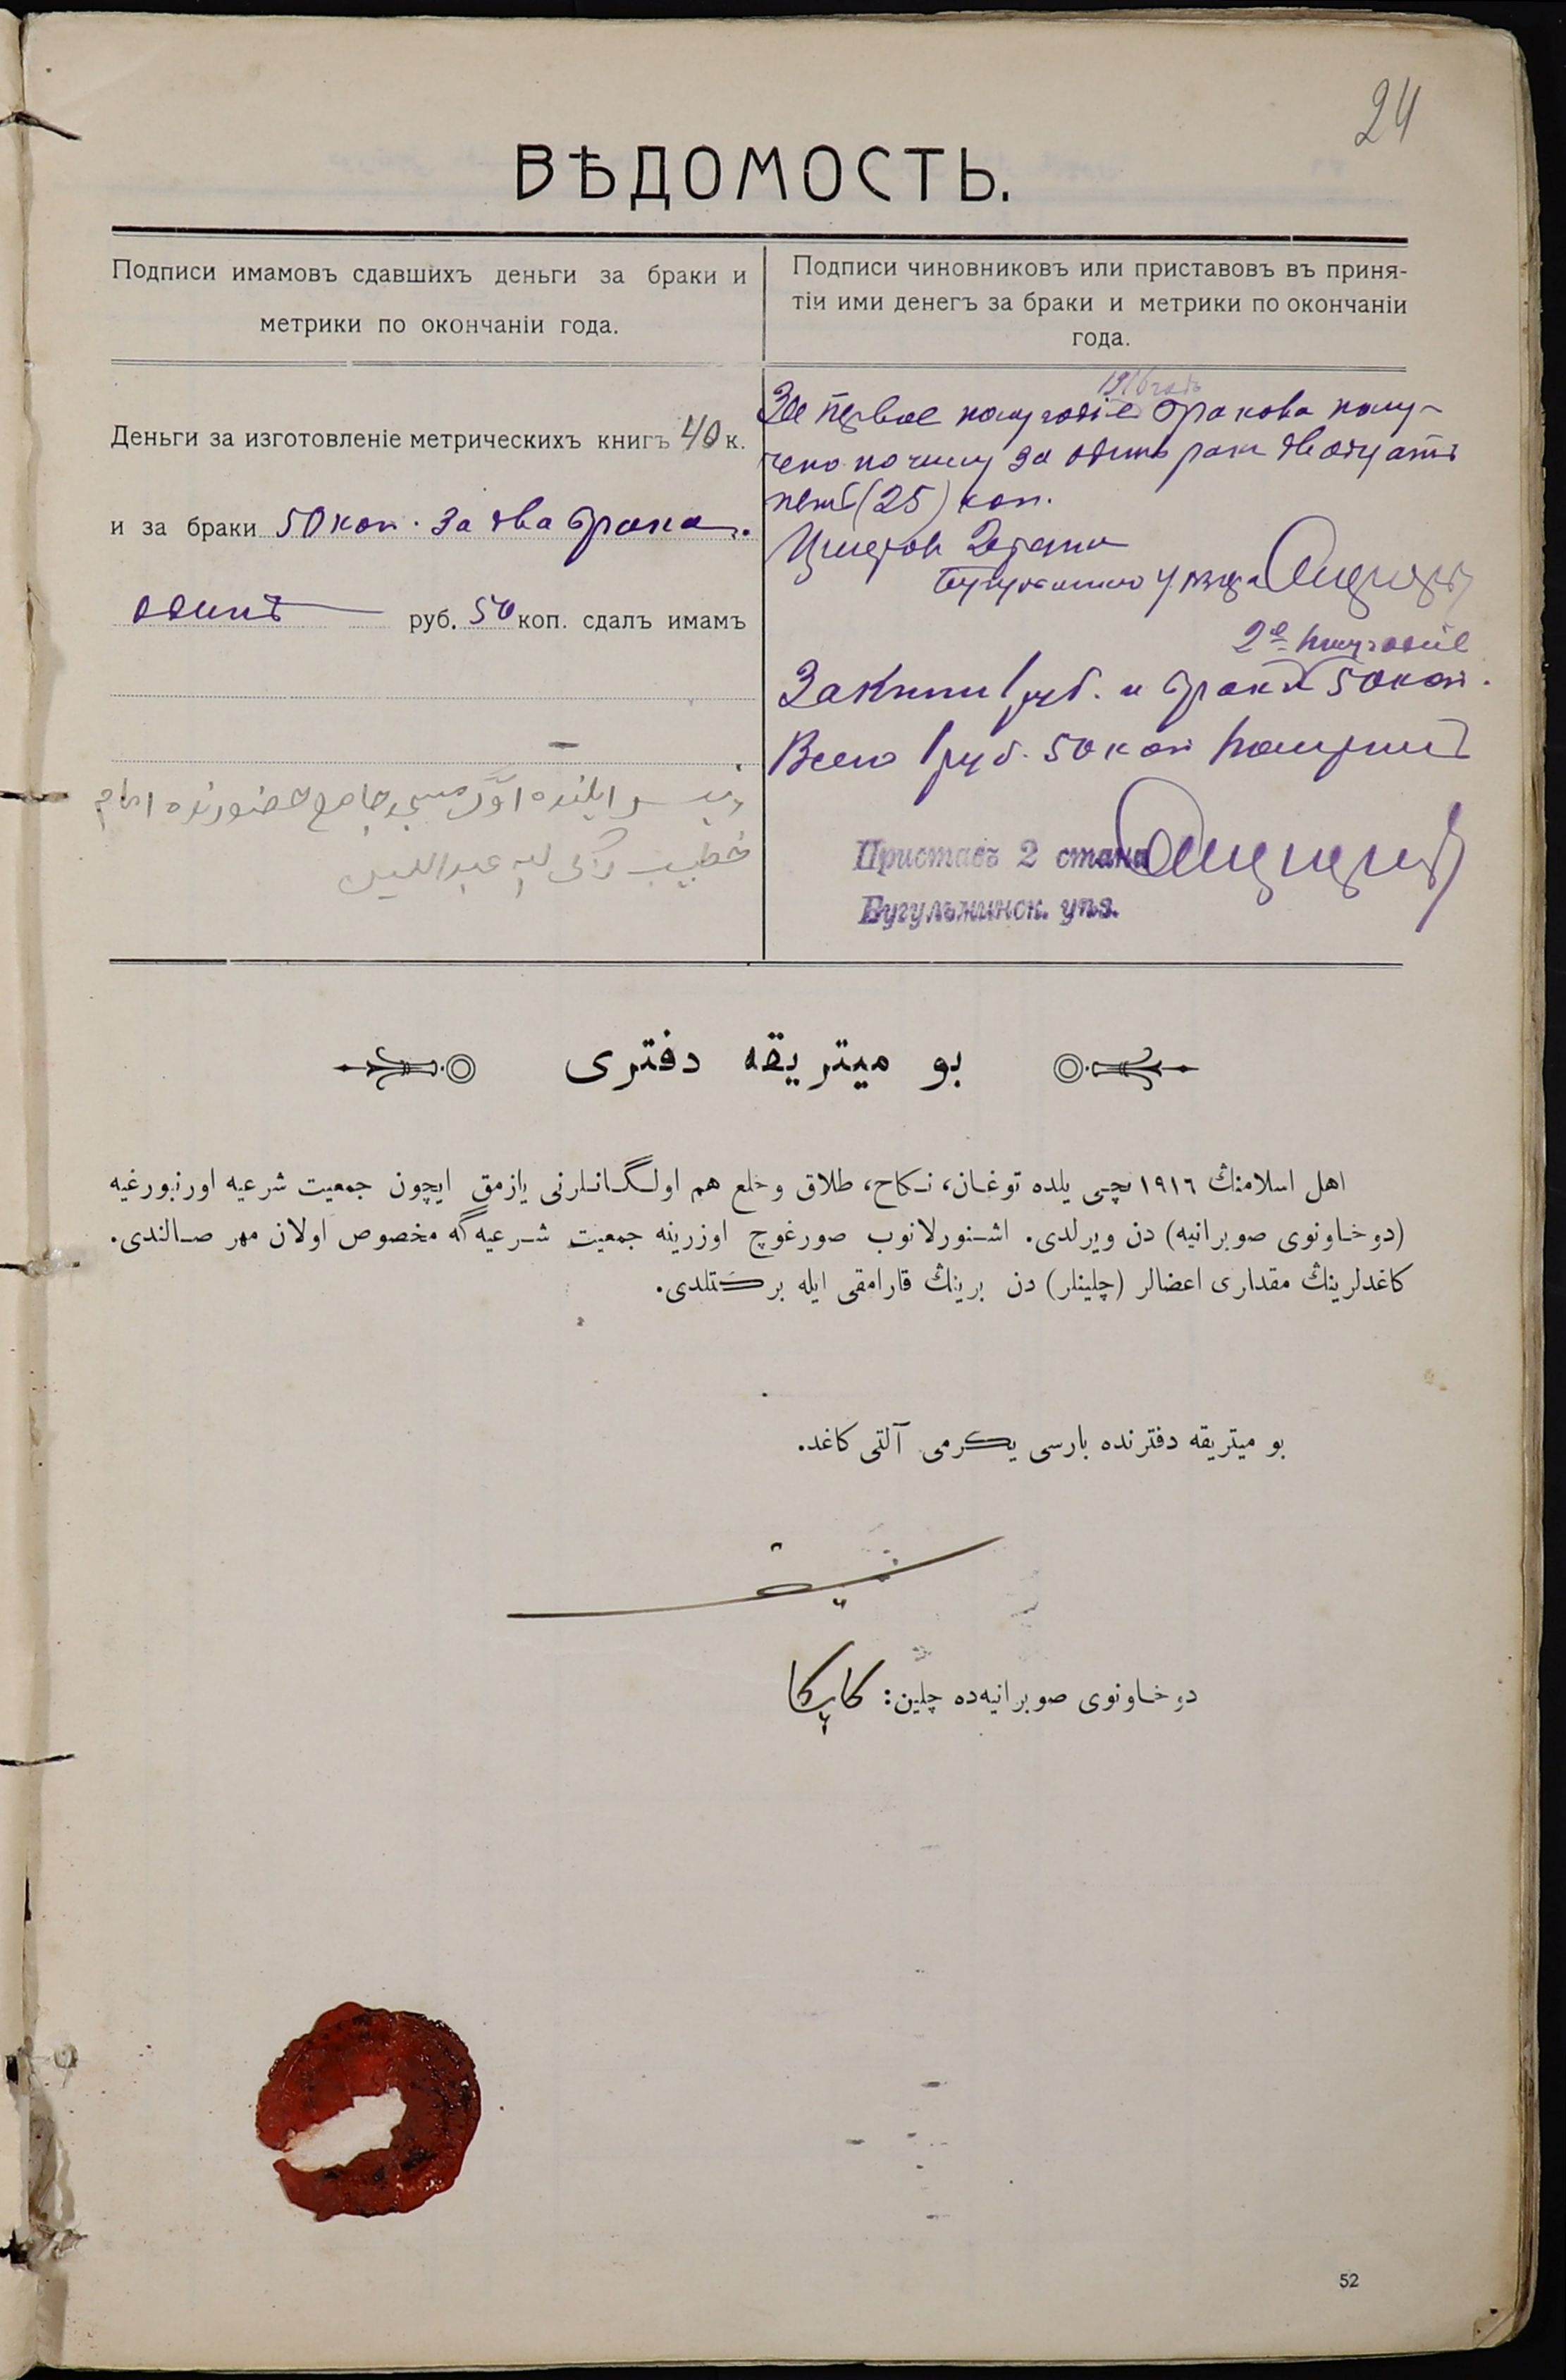 24
ВѢДОМОСТЬ.
Подписи имамовъ сдавшихъ деньги за браки и
метрики по окончаніи года.
Подписи чиновниковъ или приставовъ въ приня-
тіи ими денегъ за браки и метрики по окончаніи
года.
Деньги за изготовленіе метрическихъ книгъ 40 к.
и за браки 50 коп. за два брака.
одинъ руб. 50 коп. сдалъ имамъ
ايلنده اوّل مسجد جامع حضورنده امام
خطيب
1916 годъ
За первое полугодіе браковъ полу-
чено по числу за одинъ бракъ двадцать
пять (25) коп.
Приставъ 2 стана
Бугульминскаго уѣзда
2е полугодіе
За книги 1 руб. и браки 50 коп.
Всего 1 руб. 50 коп получилъ
Приставъ 2 стана
Бугульминск. уѣз.
بو ميتريقه دفترى
اهل اسلامنڭ ١٩١٦ نچى يلده توغان، نكاح، طلاق و خلع هم اولگانلرنى يازمق ايچون جمعيت شرعيه اورنبورغيه
(دوخاونوى صوبرانيه) دن ويرلدى. اشنورلانوب صورغوچ اوزرينه جمعيت شرعيه‌گه مخصوص اولان مهر صالندى.
كاغدلرينڭ مقدارى اعضالر (چلينلر) دن برينڭ قارامقى ايله بركتلدى.
بو ميتريقه دفترنده بارسى يكرمى آلتى كاغد.
دوخاونوى صوبرانيه‌ده چلين:
52